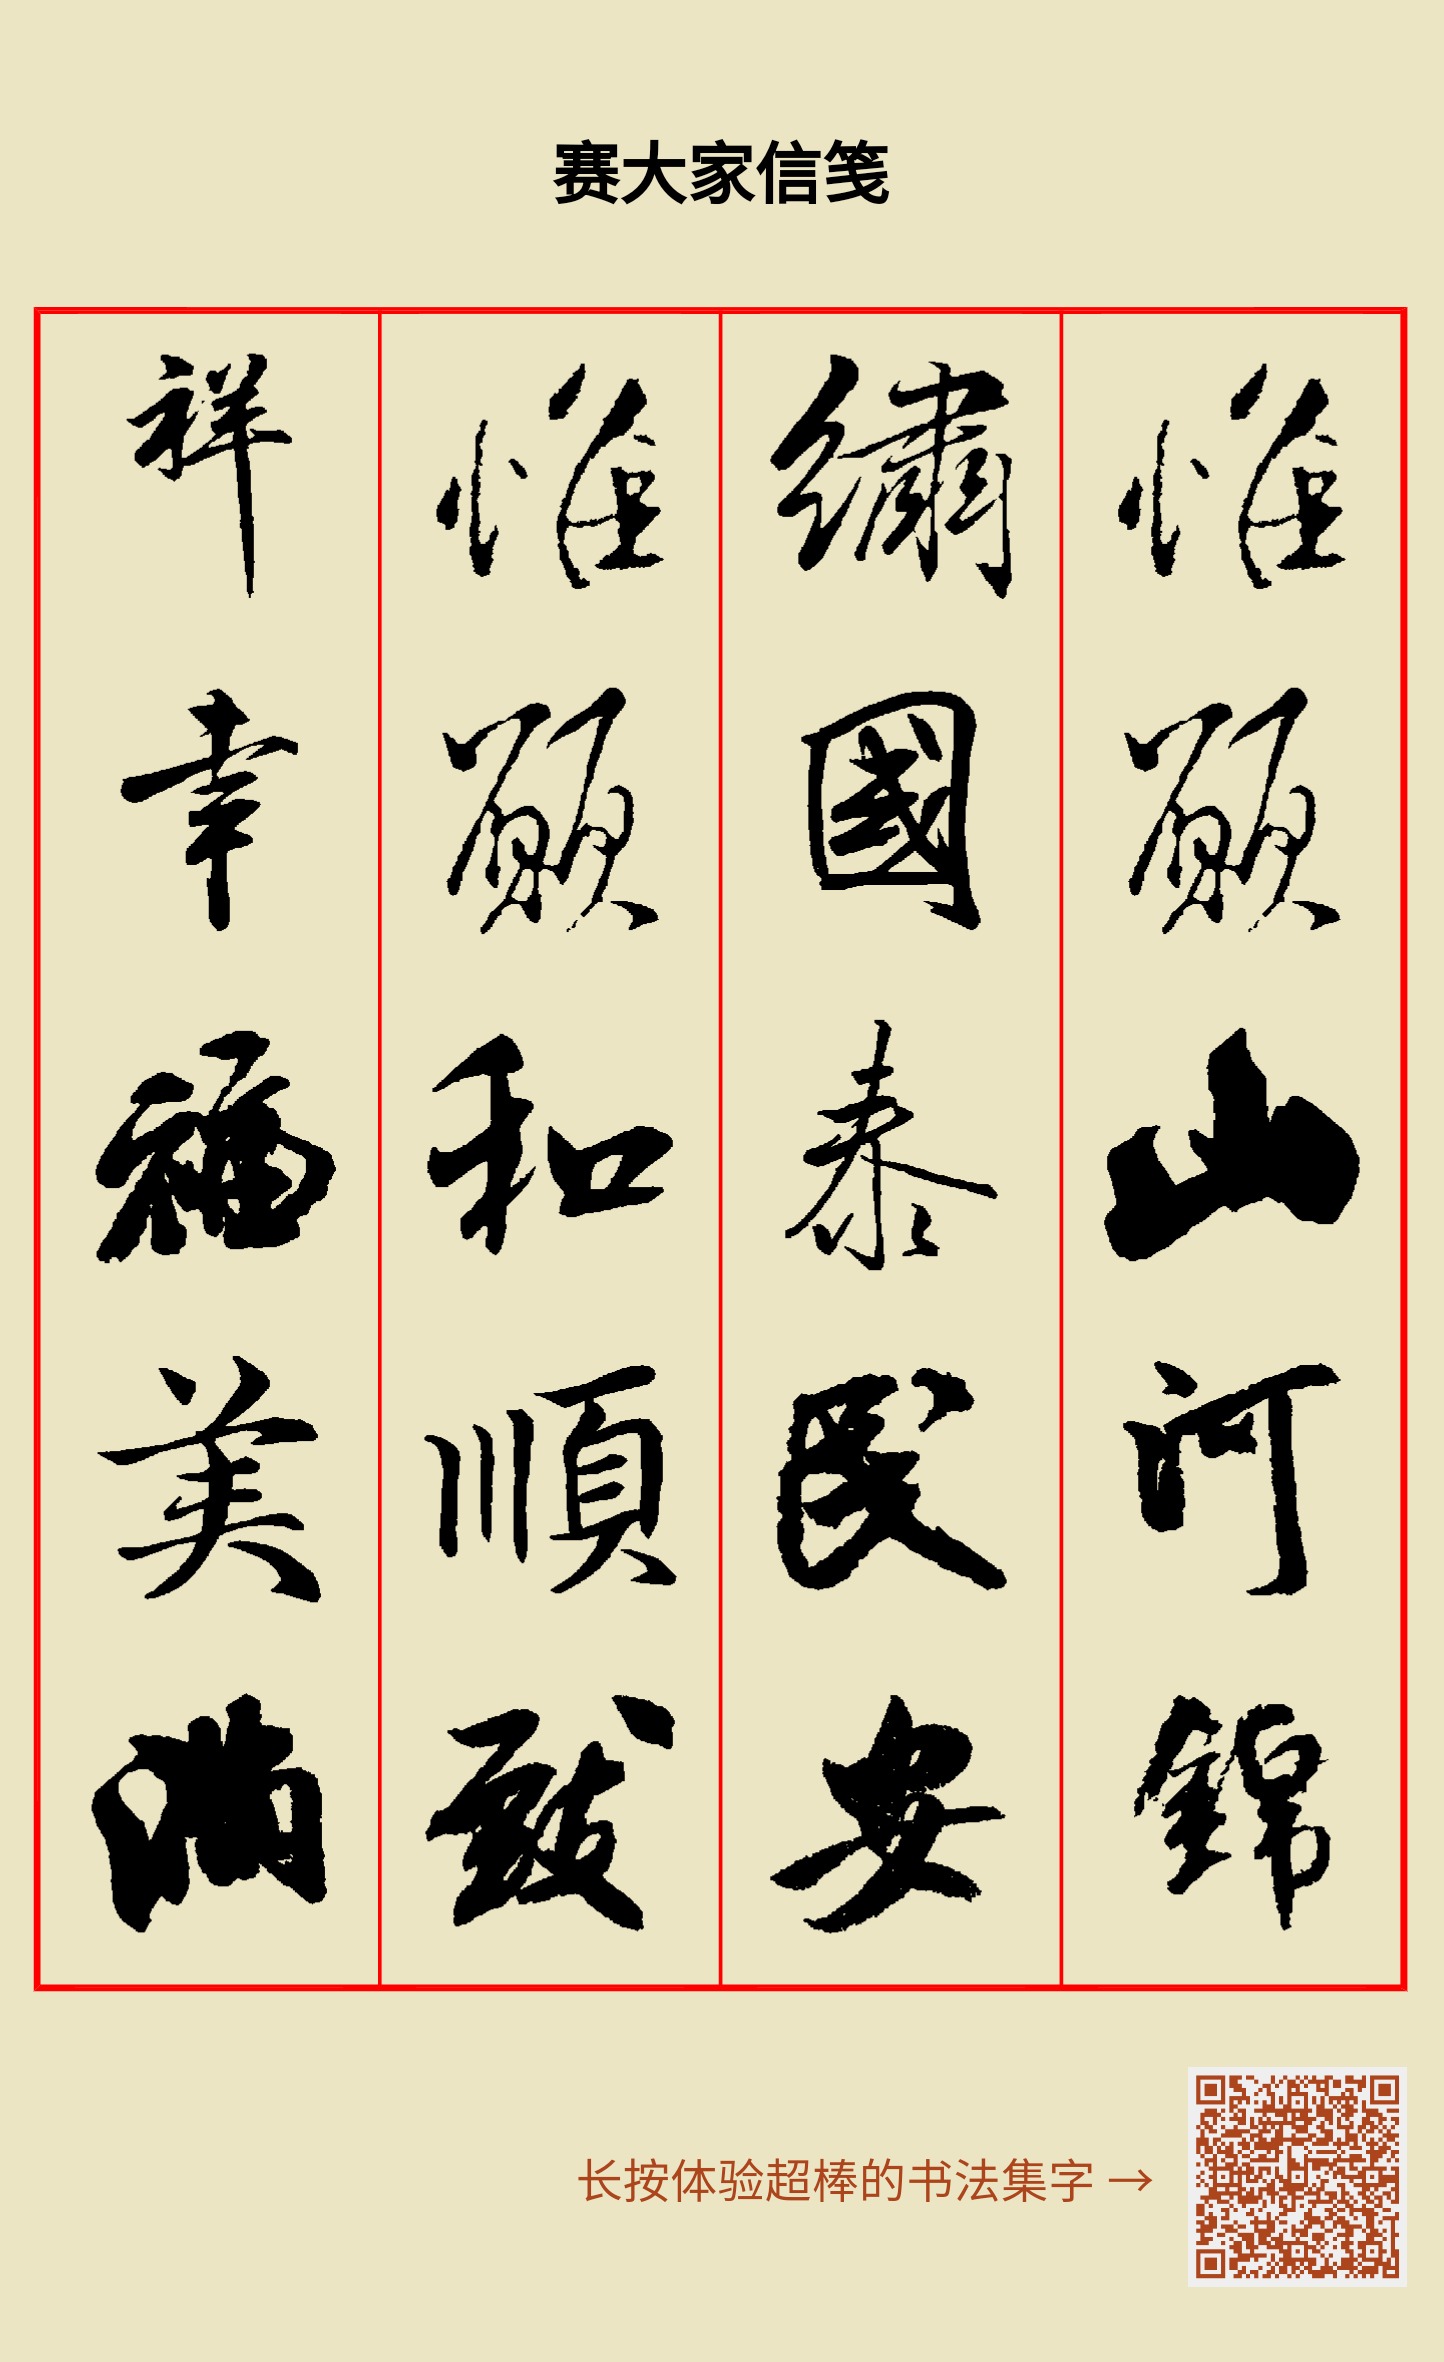 赛大家信笺
惟願山河錦
繡國泰民安
惟願和順致
祥幸福美滿
长按体验超棒的书法集字 →